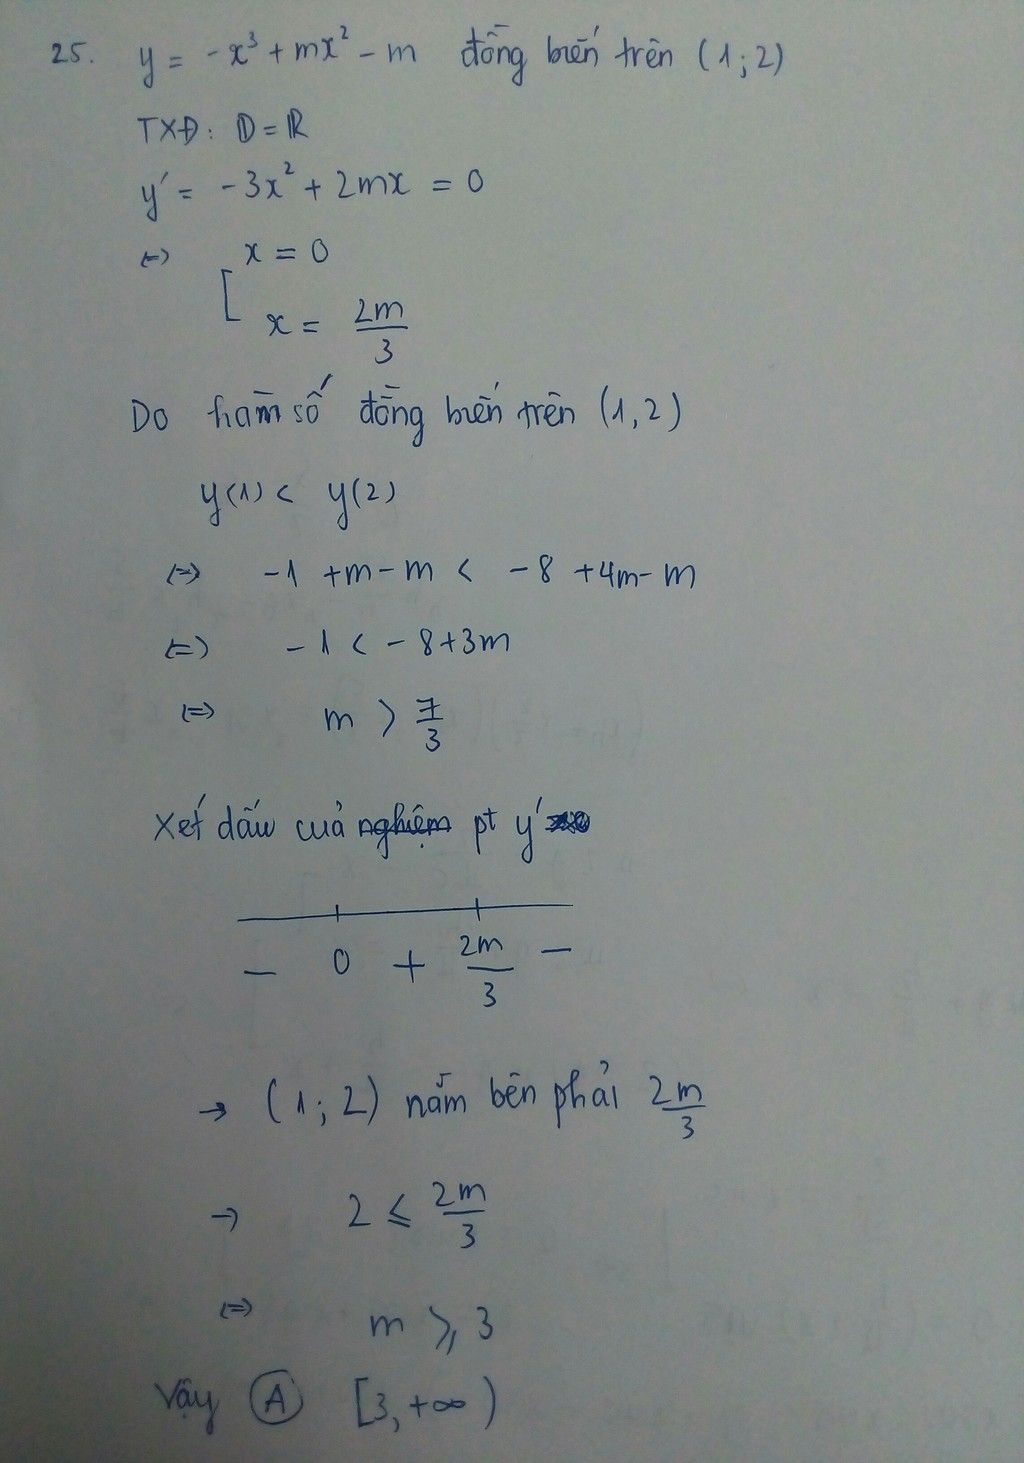 25. y = -x³ + mx² - m đồng biến trên (1; 2)
TXĐ: D = ℝ
y' = -3x² + 2mx = 0
⇔ [ x = 0
x = 2m/3
Do hàm số đồng biến trên (1, 2)
y(1) < y(2)
⇔ -1 + m - m < -8 + 4m - m
⇔ -1 < -8 + 3m
⇔ m > 7/3
Xét dấu của nghiệm pt y'
- 0 + 2m/3 -
→ (1; 2) nằm bên phải 2m/3
→ 2 ⩽ 2m/3
⇔ m ⩾ 3
Vậy A [3, +∞)